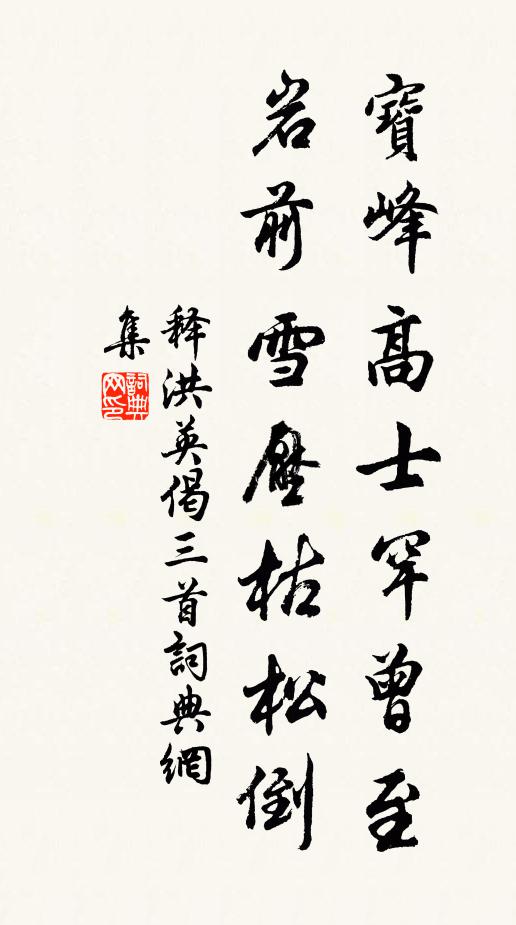 寶峰高士罕曾至
岩前雪壓枯松倒
释洪英偈三首詞典網
集
詞典网印